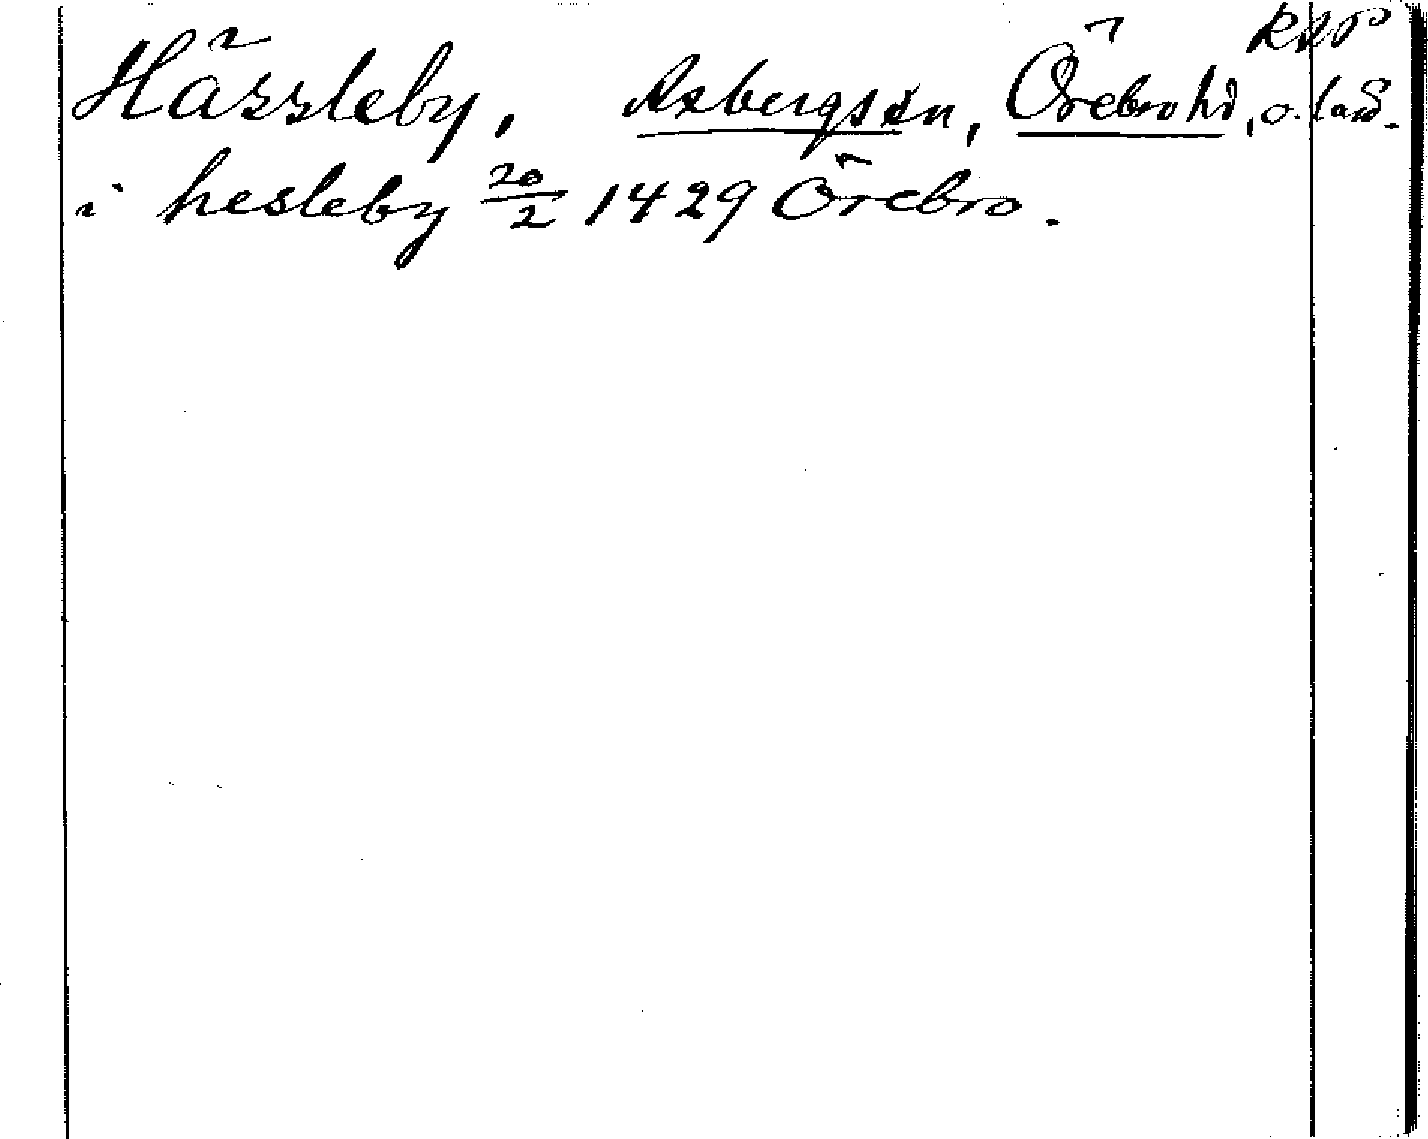 Hässleby, Axbergs sn, Örebro hd, o. land.
i hesleby 20/2 1429 Örebro.